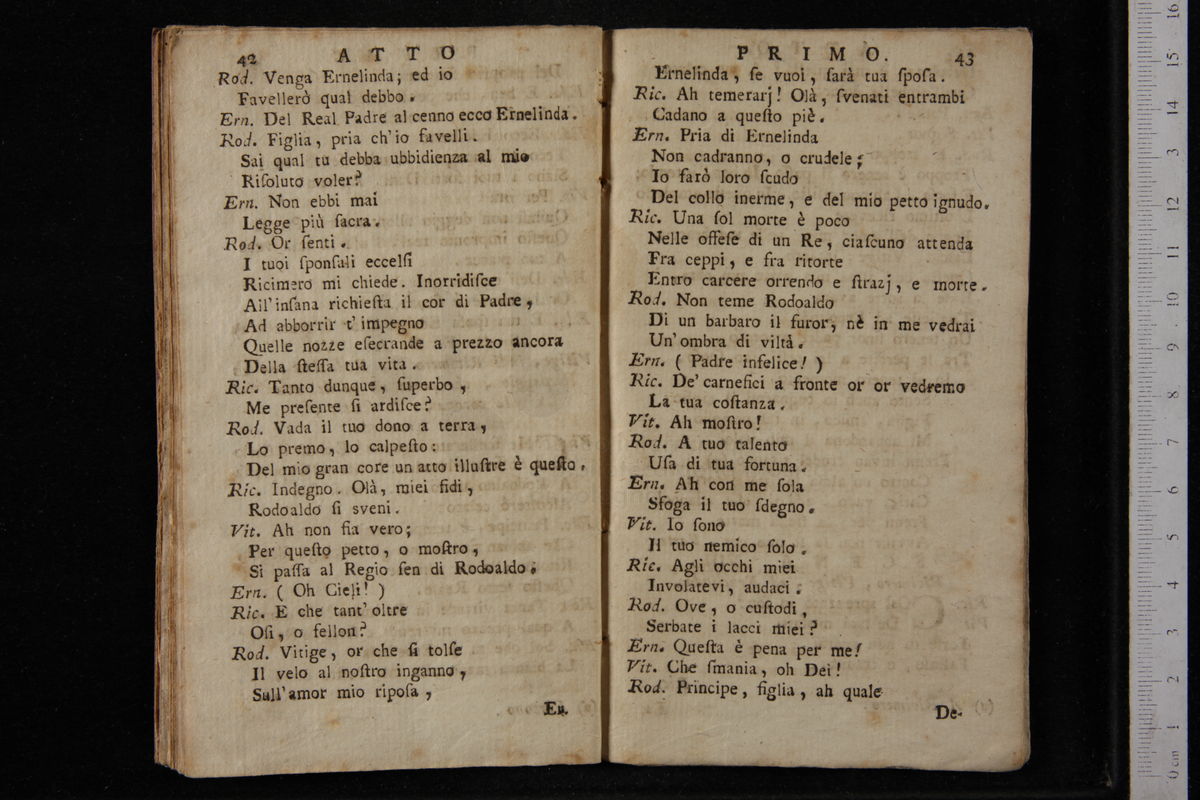 42 ATTO
Rod. Venga Ernelinda; ed io
Favellerò qual debbo.
Ern. Del Real Padre al cenno ecco Ernelinda.
Rod. Figlia, pria ch'io favelli.
Sai qual tu debba ubbidienza al mio
Riſoluto voler?
Ern. Non ebbi mai
Legge più ſacra.
Rod. Or ſenti.
I tuoi ſponſali eccelſi
Ricimero mi chiede. Inorridiſce
All'inſana richieſta il cor di Padre,
Ad abborrir t'impegno
Quelle nozze eſecrande a prezzo ancora
Della ſteſſa tua vita.
Ric. Tanto dunque, ſuperbo,
Me preſente ſi ardiſce?
Rod. Vada il tuo dono a terra,
Lo premo, lo calpeſto:
Del mio gran core un atto illuſtre è queſto.
Ric. Indegno. Olà, miei fidi,
Rodoaldo ſi sveni.
Vit. Ah non fia vero;
Per queſto petto, o moſtro,
Si paſſa al Regio ſen di Rodoaldo.
Ern. ( Oh Cieli! )
Ric. E che tant'oltre
Oſi, o fellon?
Rod. Vitige, or che ſi tolſe
Il velo al noſtro inganno,
Sull'amor mio ripoſa,
Er.
PRIMO. 43
Ernelinda, ſe vuoi, ſarà tua ſpoſa.
Ric. Ah temerarj! Olà, ſvenati entrambi
Cadano a queſto piè.
Ern. Pria di Ernelinda
Non cadranno, o crudele;
Io farò loro ſcudo
Del collo inerme, e del mio petto ignudo.
Ric. Una ſol morte è poco
Nelle offeſe di un Re, ciaſcuno attenda
Fra ceppi, e fra ritorte
Entro carcere orrendo e ſtrazj, e morte.
Rod. Non teme Rodoaldo
Di un barbaro il furor, nè in me vedrai
Un'ombra di viltà.
Ern. ( Padre infelice! )
Ric. De' carnefici a fronte or or vedremo
La tua coſtanza.
Vit. Ah moſtro!
Rod. A tuo talento
Uſa di tua fortuna.
Ern. Ah con me ſola
Sfoga il tuo ſdegno.
Vit. Io ſono
Il tuo nemico ſolo.
Ric. Agli occhi miei
Involatevi, audaci.
Rod. Ove, o cuſtodi,
Serbate i lacci miei?
Ern. Queſta è pena per me!
Vit. Che ſmania, oh Dei!
Rod. Principe, figlia, ah quale
De-
0 cm 1 2 3 4 5 6 7 8 9 10 11 12 3 14 15 16